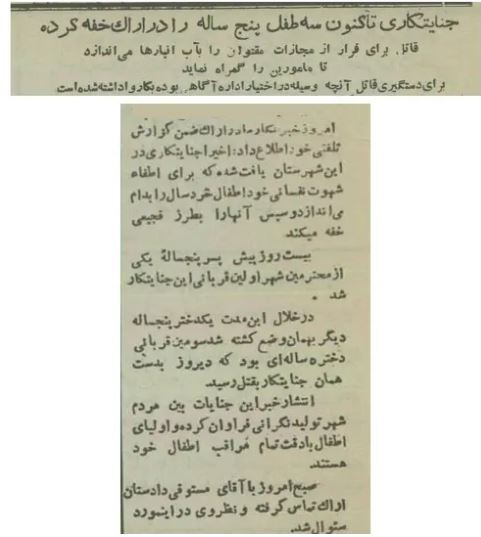 جنایتکاری تاکنون سه طفل پنج ساله را در اراک خفه کرده
قاتل برای فرار از مجازات مقتولان را بآب انبارها می‌اندازد
تا مامورین را گمراه نماید
برای دستگیری قاتل آنچه وسیله در اختیار اداره آگاهی بوده بکار واداشته شده است
امروز خبرنگار ما در اراک ضمن گزارش
تلفنی خود اطلاع داد: اخیرا جنایتکاری در
این شهرستان یافت شده که برای اطفاء
شهوت نفسانی خود اطفال خردسال را بدام
می‌اندازد و سپس آنها را بطرز فجیعی
خفه میکند
بیست روز پیش پسر پنجسالهٔ یکی
از محترمین شهر اولین قربانی این جنایتکار
شد .
در خلال این مدت یکدختر پنجساله
دیگر بهمان وضع کشته شد سومین قربانی
دختر ساله‌ای بود که دیروز بدست
همان جنایتکار بقتل رسید.
انتشار خبر این جنایات بین مردم
شهر تولید نگرانی فراوان کرده و اولیای
اطفال بادقت تمام مراقب اطفال خود
هستند.
صبح امروز با آقای مستوفی دادستان
اراک تماس گرفته و نظر وی در اینمورد
سئوال شد.